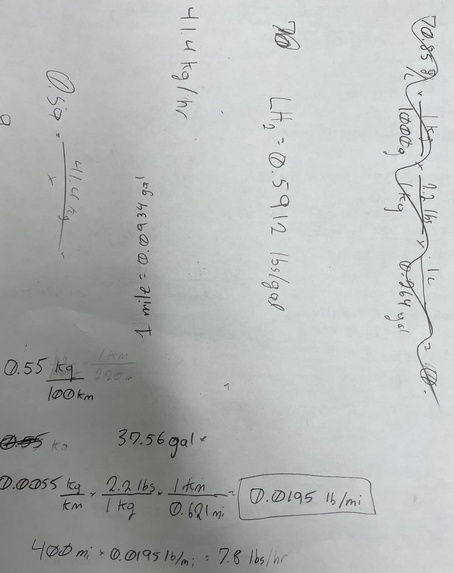 70.85 g/L × 1 kg/1000g × 2.2 lbs/1 kg × 1L/0.264 gal =
LH₂ = 0.5912 lbs/gal
41.4 kg/hr
1 mile = 0.00934 gal
0.59 · 41.4 kg/x
g
0.55 kg/100 km
1 km
0.55 kg
37.56 gal ×
0.0055 kg/km × 2.2 lbs/1 kg × 1 km/0.621 mi = 0.0195 lb/mi
400 mi × 0.0195 lb/mi = 7.8 lbs/hr